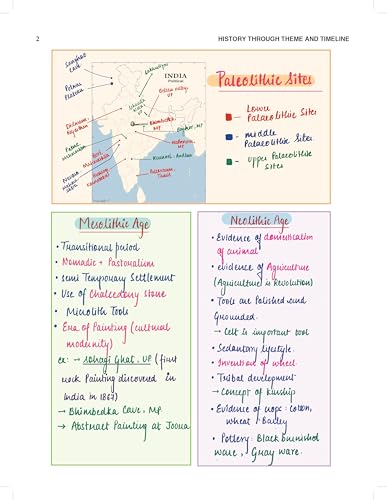 2
HISTORY THROUGH THEME AND TIMELINE
Sanghao
Cave
Potwar
Plateau
INDIA
Political
Belan valley,
UP
Bhimbedka
MP
Didwana,
Rajasthan
Kurnool, Andhra
Paleolithic Sites
Lower
Palaeolithic Sites
middle
Palaeolithic Sites.
upper Palaeolithic
Sites
Mesolithic Age
• Transitional period
• Nomadic + Pastoralism
• Semi Temporary Settlement
• Use of Chalcedony stone
• Microlith Tools
• Era of Painting (cultural
modernity)
ex: → Sohagi Ghat, UP (first
rock Painting discovered in
India in 1867)
→ Bhimbedka Cave, MP
→ Abstract Painting at Jaora
Neolithic Age
• Evidence of domestication
of animal
• evidence of Agriculture
(Agriculture is Revolution)
• Tools are Polished and
Grounded.
→ Celt is important tool
• Sedantary lifestyle.
• Invention of wheel.
• Tribal development
→ Concept of Kinship
• Evidence of crops: Cotton,
wheat Barley
• Pottery: Black burnished
ware, Gray ware.